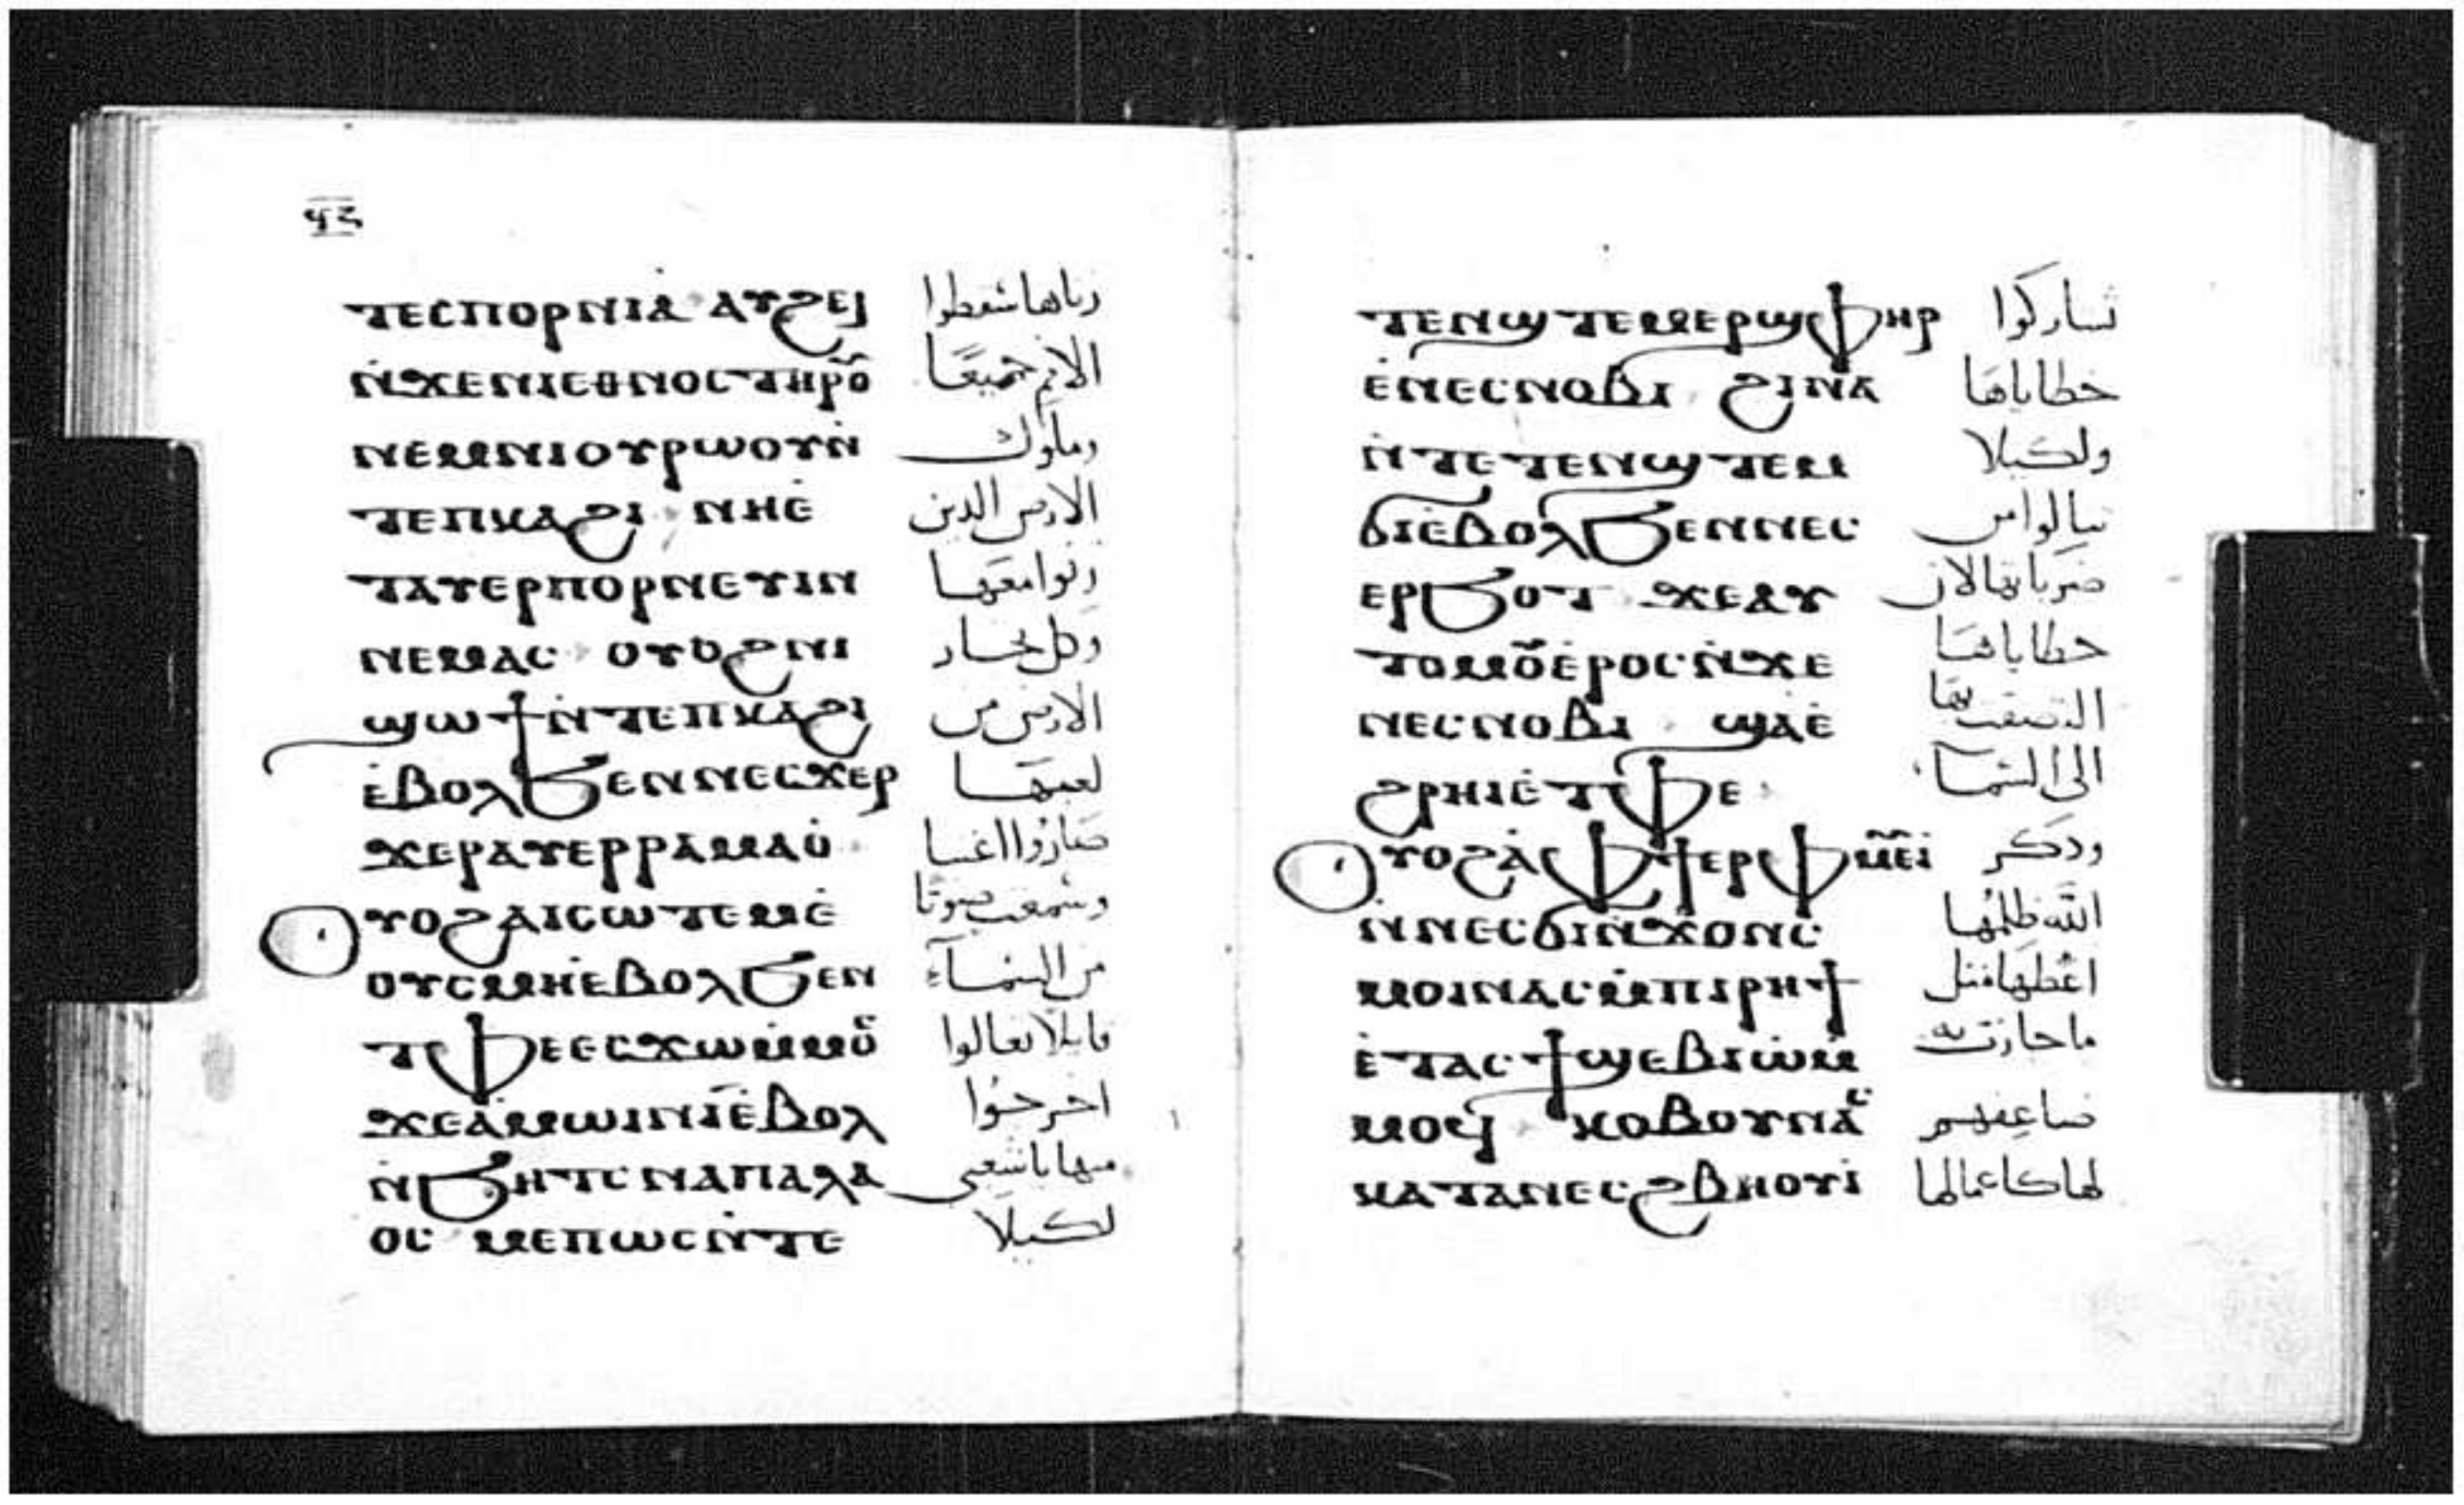 ϥ̅ⲍ̅
ⲧⲉⲥⲡⲟⲣⲛⲓⲁ̀ ⲁⲩϩⲉⲓ
زناها سقطوا
ⲛ̀ϫⲉⲛⲓⲉⲑⲛⲟⲥⲧⲏⲣⲟ⩩
الامم جميعًا
ⲛⲉⲙⲛⲓⲟⲩⲣⲱⲟⲩⲛ̀
وملوك
ⲧⲉⲡⲕⲁϩⲓ ⲛⲏⲉ̀
الارض الذين
ⲧⲁⲩⲉⲣⲡⲟⲣⲛⲉⲩⲓⲛ
زنوا معها
ⲛⲉⲙⲁⲥ ⲟⲩⲟϩⲛⲓ
وكل تجار
ϣⲱϯⲛ̀ⲧⲉⲡⲕⲁϩⲓ
الارض من
ⲉ̀ⲃⲟⲗϧⲉⲛⲛⲉⲥϫⲉⲣ
لعبها
ϫⲉⲣⲁⲩⲉⲣⲣⲁⲙⲁⲟ̀
صاروا اغنيا
ⲟⲩⲟϩⲁⲓⲥⲱⲧⲉⲙⲉ̀
وسمعت صوتا
ⲟⲩⲥⲙⲏⲉ̀ⲃⲟⲗϧⲉⲛ
من السمآء
ⲧⲫⲉⲉⲥϫⲱⲙ̀ⲙⲟⲥ
قايلا تعالوا
ϫⲉⲁ̀ⲙⲱⲓⲛⲓⲉ̀ⲃⲟⲗ
اخرجوا
ⲛ̀ϧⲏⲧⲥ ⲛⲁⲡⲁⲗⲁ
منها يا شعبي
ⲟⲥ ⲙⲉⲡⲱⲥⲛ̀ⲧⲉ
لكيلا
ⲧⲉⲛϣⲧⲉⲙⲉⲣϣⲫⲏⲣ
تشاركوا
ⲉ̀ⲛⲉⲥⲛⲟⲃⲓ ϩⲓⲛⲁ
خطاياها
ⲛ̀ⲧⲉⲧⲉⲛϣⲧⲉⲙ
ولكيلا
ϭⲓⲉ̀ⲃⲟⲗϧⲉⲛⲛⲉⲥ
تنالوا من
ⲉⲣϧⲟⲧ ϫⲉⲁⲩ
ضرباتها لان
ⲧⲟⲙⲟⲩⲉ̀ⲣⲟⲥⲛ̀ϫⲉ
خطاياها
ⲛⲉⲥⲛⲟⲃⲓ ϣⲁⲉ̀
التصقت بها
ϩⲣⲏⲓⲉ̀ⲧⲫⲉ
الى السما
ⲟⲩⲟϩⲁ̀ⲫϯⲉⲣⲫⲙⲉⲩⲓ̀
وذكر
ⲛ̀ⲛⲉⲥϭⲓⲛϫⲟⲛⲥ
الله ظلمها
ⲙⲟⲓⲛⲁⲥⲙ̀ⲡⲓⲣⲏϯ
اعطها مثل
ⲉ̀ⲧⲁⲥϯϣⲉⲃⲓⲱ̀ⲙ̀
ما جازت به
ⲙⲟϥ ⲕⲟⲃⲟⲩⲛⲁⲥ
ضاعفهم
ⲕⲁⲧⲁⲛⲉⲥϩⲃⲏⲟⲩⲓ̀
لها كاعمالها